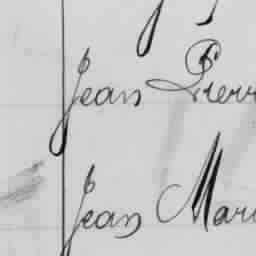 Jean Pierr
Jean Mari